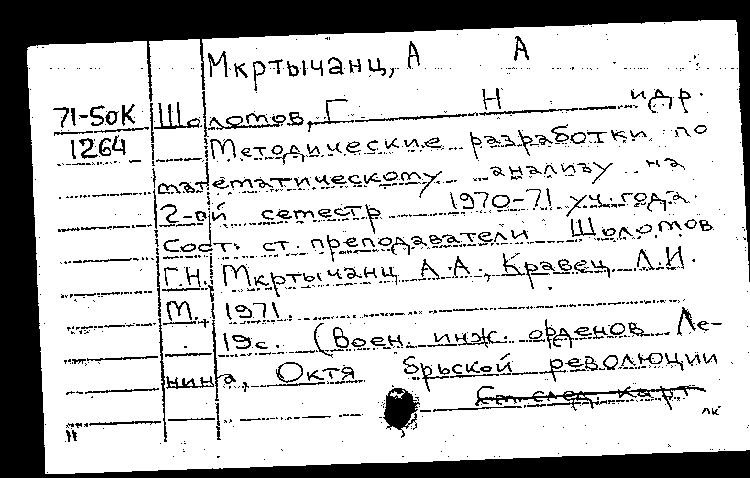 Мкртычанц, А А
71-50К Шоломов, Г Н и др.
1264 Методические разработки по
математическому анализу на
2-ой семестр 1970-71 уч. года.
Сост. ст. преподаватели Шоломов
Г.Н. Мкртычанц А.А., Кравец Л.И.
М., 1971.
19с. (Воен. инж. орденов Ле-
нина, Октя брьской революции
См. след. карт
лк